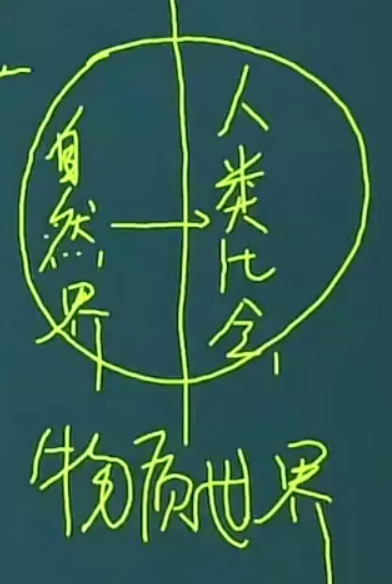 自然界
人类社会
物质世界